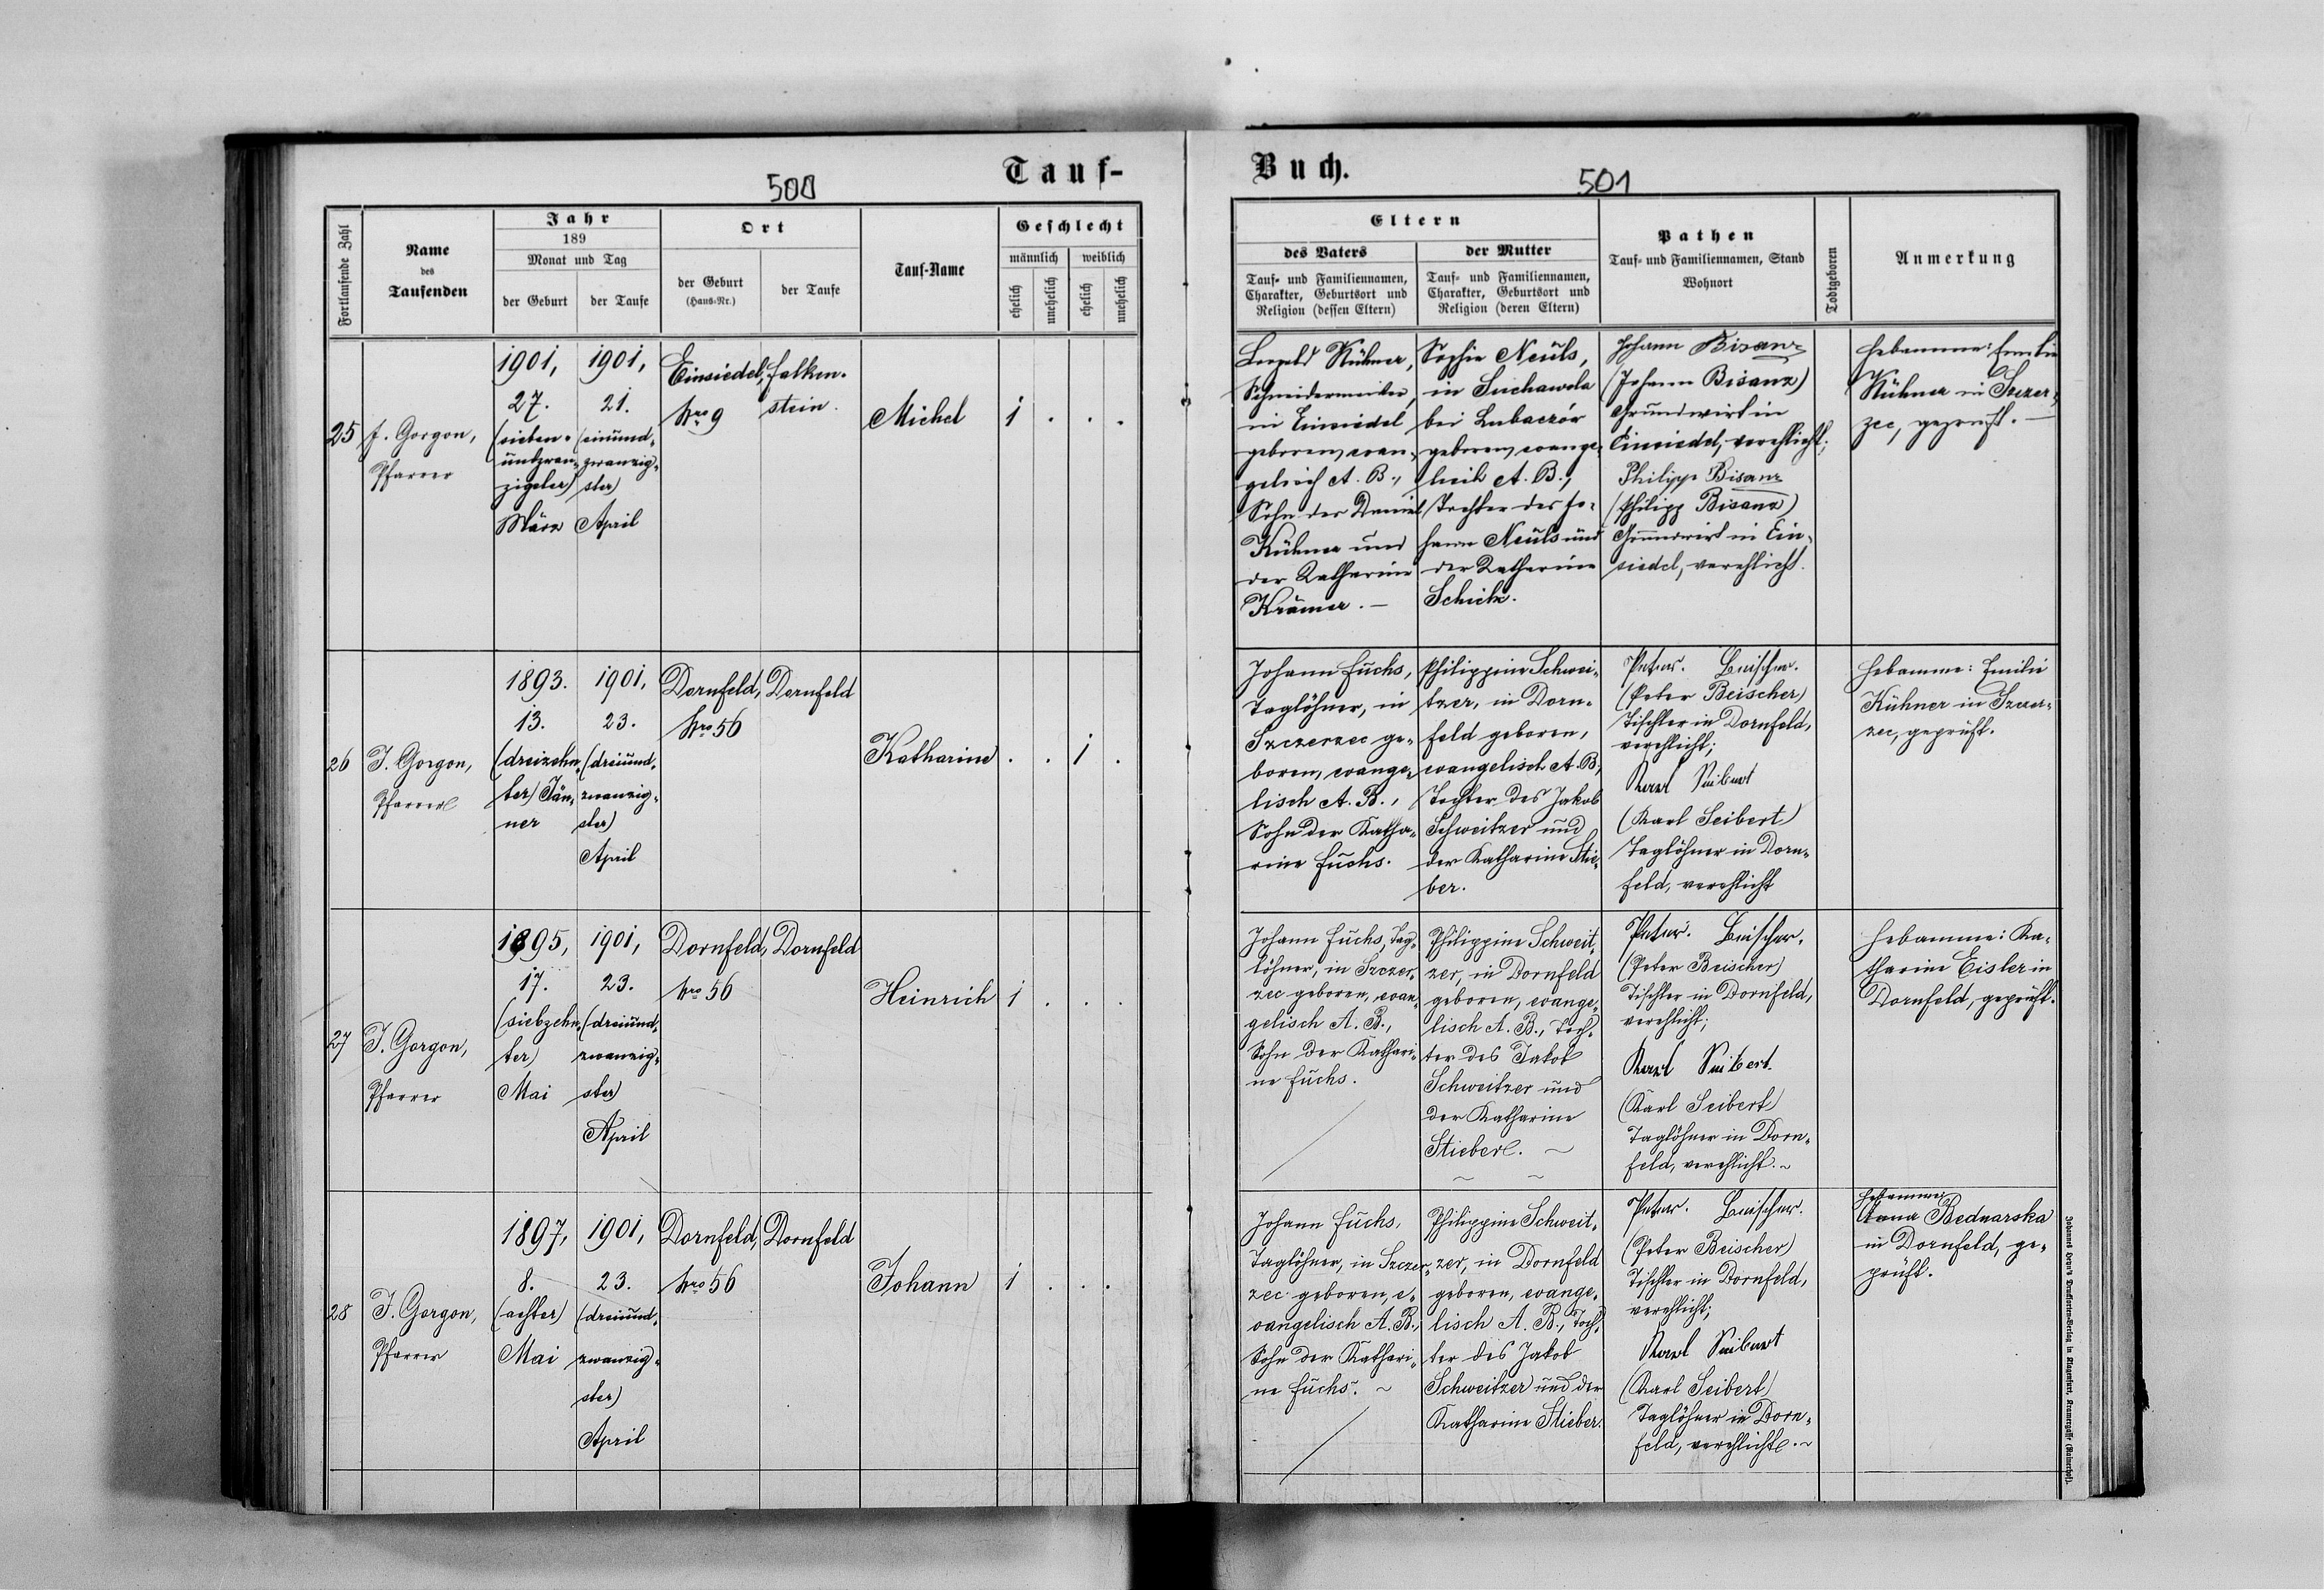 Tauf-
500
Fortlaufende Zahl
Name
des
Taufenden
Jahr
189
Monat und Tag
der Geburt
der Taufe
Ort
der Geburt
(Haus-Nr.)
der Taufe
Tauf-Name
Geschlecht
männlich
weiblich
ehelich
unehelich
ehelich
unehelich
25
J. Gorgon,
Pfarrer
1901,
27.
(sieben-
undzwan-
zigster)
März
1901,
21.
(einund-
zwanzig-
ster)
April
Einsiedel,
Nro 9
Falken-
stein.
Michel
1 . . .
26
J. Gorgon,
Pfarrer
1893.
13.
(dreizehn-
ter) Jän-
ner
1901,
23.
(dreiund-
zwanzig-
ster)
April
Dornfeld,
Nro 56
Dornfeld
Katharine
. . 1 .
27
J. Gorgon,
Pfarrer
1895,
17.
(siebzehn-
ter)
Mai
1901,
23.
(dreiund-
zwanzig-
ster)
April
Dornfeld,
Nro 56
Dornfeld
Heinrich
1 . . .
28
J. Gorgon,
Pfarrer
1897,
8.
(achter)
Mai
1901,
23.
(dreiund-
zwanzig-
ster)
April
Dornfeld,
Nro 56
Dornfeld
Johann
1 . . .
Buch.
501
Eltern
des Vaters
Tauf- und Familiennamen,
Charakter, Geburtsort und
Religion (dessen Eltern)
der Mutter
Tauf- und Familiennamen,
Charakter, Geburtsort und
Religion (deren Eltern)
Pathen
Tauf- und Familiennamen, Stand
Wohnort
Todtgeboren
Anmerkung
Leopold Kühner,
Schneidermeister,
in Einsiedel
geboren, evan-
gelisch A. B.,
Sohn des Daniel
Kühner und
der Katharine
Krämer. —
Sophie Neuls,
in Suchawola
bei Lubaczów
geboren, evange-
lisch A. B.,
Tochter des Jo-
hann Neuls und
der Katharine
Schick.
Johann Bisanz
(Johann Bisanz)
Grundwirt in
Einsiedel, verehlicht;
Philipp Bisanz
(Philipp Bisanz)
Grundwirt in Ein-
siedel, verehlicht.
Hebamme: Emilie
Kühner in Szczer-
zec, geprüft. —
Johann Fuchs,
Taglöhner, in
Szczerzec ge-
boren, evange-
lisch A. B.,
Sohn der Katha-
rine Fuchs.
Philippine Schwei-
tzer, in Dorn-
feld geboren,
evangelisch A. B.,
Tochter des Jakob
Schweitzer und
der Katharine Stie-
ber.
Peter. Beischer.
(Peter Beischer)
Tischler in Dornfeld,
verehlicht;
Karl Seibert
(Karl Seibert)
Taglöhner in Dorn-
feld, verehlicht
Hebamme: Emilie
Kühner in Szczer-
zec, geprüft.
Johann Fuchs, Tag-
löhner, in Szczer-
zec geboren, evan-
gelisch A. B.,
Sohn der Kathari-
ne Fuchs.
Philippine Schweit-
zer, in Dornfeld
geboren, evange-
lisch A. B., Toch-
ter des Jakob
Schweitzer und
der Katharine
Stieber. ~
Peter. Beischer.
(Peter Beischer)
Tischler in Dornfeld,
verehlicht;
Karl Seibert.
(Karl Seibert)
Taglöhner in Dorn-
feld, verehlicht. ~
Hebamme: Ka-
tharine Eisler in
Dornfeld, geprüft.
Johann Fuchs,
Taglöhner, in Szczer-
zec geboren, e-
vangelisch A. B.,
Sohn der Kathari-
ne Fuchs. ~
Philippine Schweit-
zer, in Dornfeld
geboren, evange-
lisch A. B., Toch-
ter des Jakob
Schweitzer und der
Katharine Stieber.
Peter. Beischer.
(Peter Beischer)
Tischler in Dornfeld,
verehlicht;
Karl Seibert
(Karl Seibert)
Taglöhner in Dorn-
feld, verehlicht. ~
Hebamme:
Anna Bednarska
in Dornfeld, ge-
prüft.
Johannes Heyn's Drucksorten-Verlag in Klagenfurt, Kramergasse (Rainerhof).